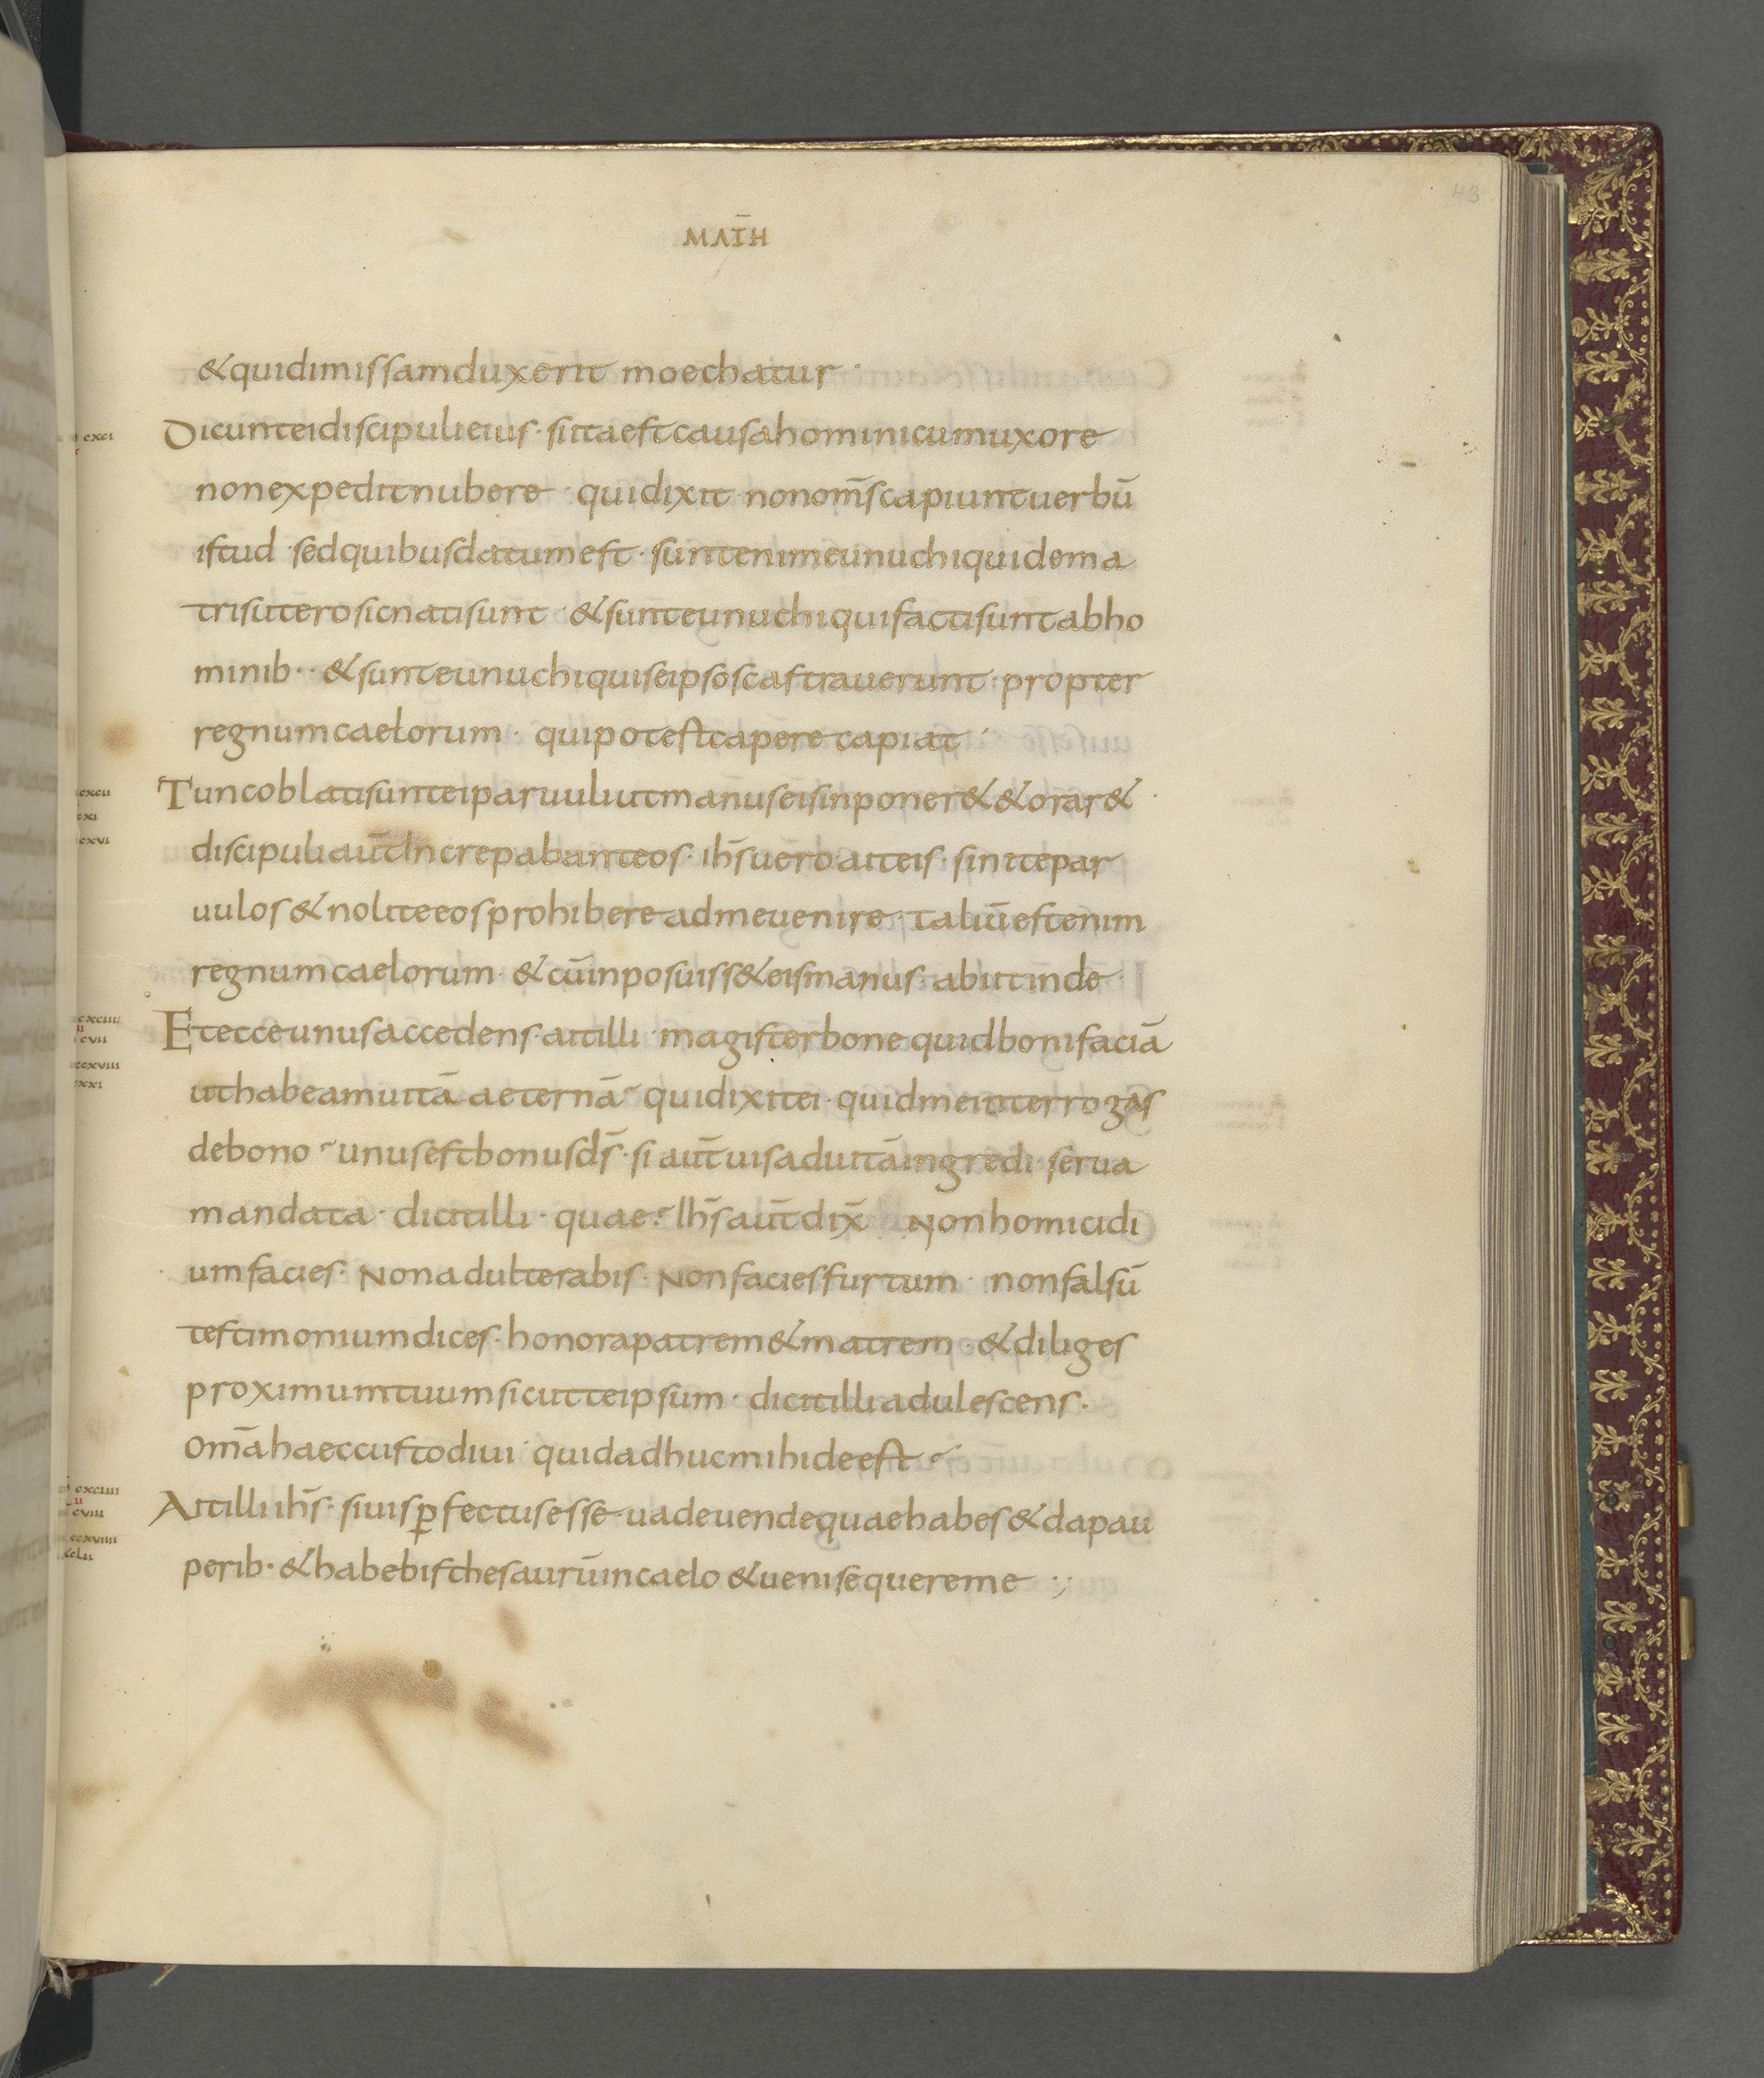 43
MAT̄H
& quidimissamduxerit moechatur ·
cxci
Dicunteidiscipulieius · siitaestcausahominicumuxore
nonexpeditnubere · quidixit nonom̄scapiuntuerbū
istud · sedquibusdatumest · suntenimeunuchiquidema
trisuterosicnatisunt · &sunteunuchiquifactisuntabho
minib· · &sunteunuchiquiseipsoscastrauerunt · propter
regnumcaelorum · quipotestcapere capiat ·
cxcii
Tuncoblatisunteiparuuliutmanuseisinponer& &orar& ·
discipuliaut̄increpabanteos · ih̄suero aiteis · sinitepar
uulos&noliteeosprohibereadmeuenire · taliūestenim
regnumcaelorum · &cūinposuiss&eismanus · abiitinde ·
cxciii
Etecceunusaccedens · aitilli · magisterbone quidbonifaciā
uthabeamuitā aeternā · quidixitei · quidmeinterrogas
debono · unusestbonusds̄ · si aut̄uisaduitāingredi · serua
mandata · dicitilli · quae · ih̄saut̄dix̄ Nonhomicidi
umfacies · Nonadulterabis · Nonfaciesfurtum · nonfalsū
testimoniumdices · honorapatrem&matrem · &diliges
proximumtuumsicutteipsum · dicitilliadulescens ·
om̄ahaeccustodiui · quidadhucmihideest ·
cxciiii
Aitilliih̄s · siuisꝑfectusesse uadeuendequaehabes&dapau
perib· &habebisthesaurūincaelo &uenisequereme ·,